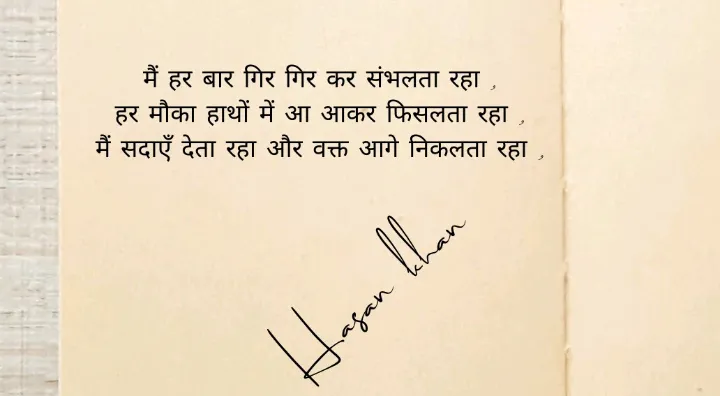 मैं हर बार गिर गिर कर संभलता रहा ,
हर मौका हाथों में आ आकर फिसलता रहा ,
मैं सदाएँ देता रहा और वक्त आगे निकलता रहा ,
Hasan khan